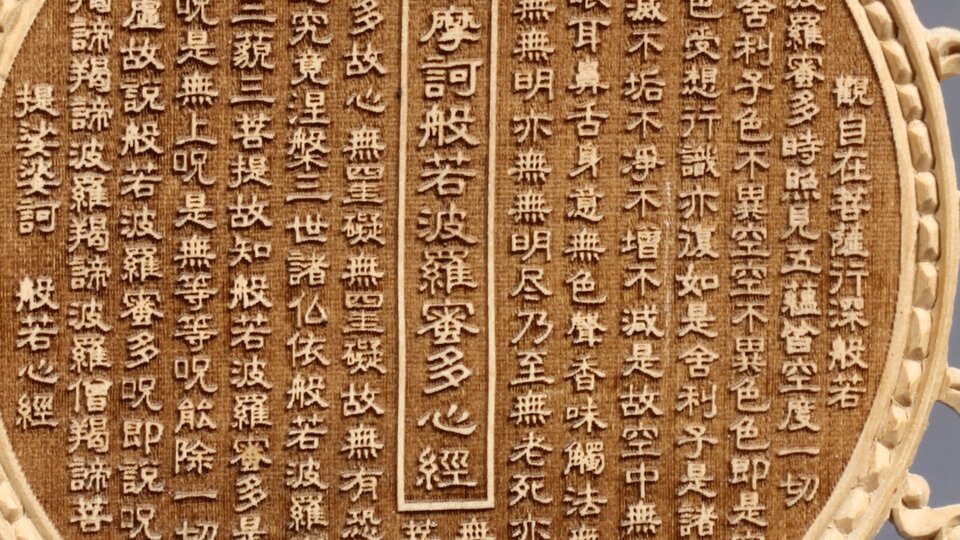 觀自在菩薩行深般若
波羅蜜多時照見五蘊皆空度一切
舍利子色不異空空不異色色即是
色受想行識亦復如是舍利子是諸
滅不垢不淨不增不減是故空中無
眼耳鼻舌身意無色聲香味觸法無
無無明亦無無明尽乃至無老死亦
無
摩訶般若波羅蜜多心經
若
多故心無罣礙無罣礙故無有恐
究竟涅槃三世諸仏依般若波羅
三藐三菩提故知般若波羅蜜多是
呪是無上呪是無等等呪能除一切
虛故說般若波羅蜜多呪即說呪
羯諦羯諦波羅羯諦波羅僧羯諦菩
提娑婆訶 般若心經